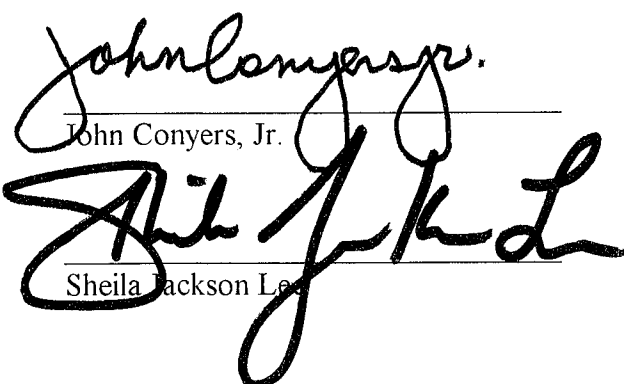 John Conyers Jr.
John Conyers, Jr.
Sheila Jackson Lee
Sheila Jackson Lee